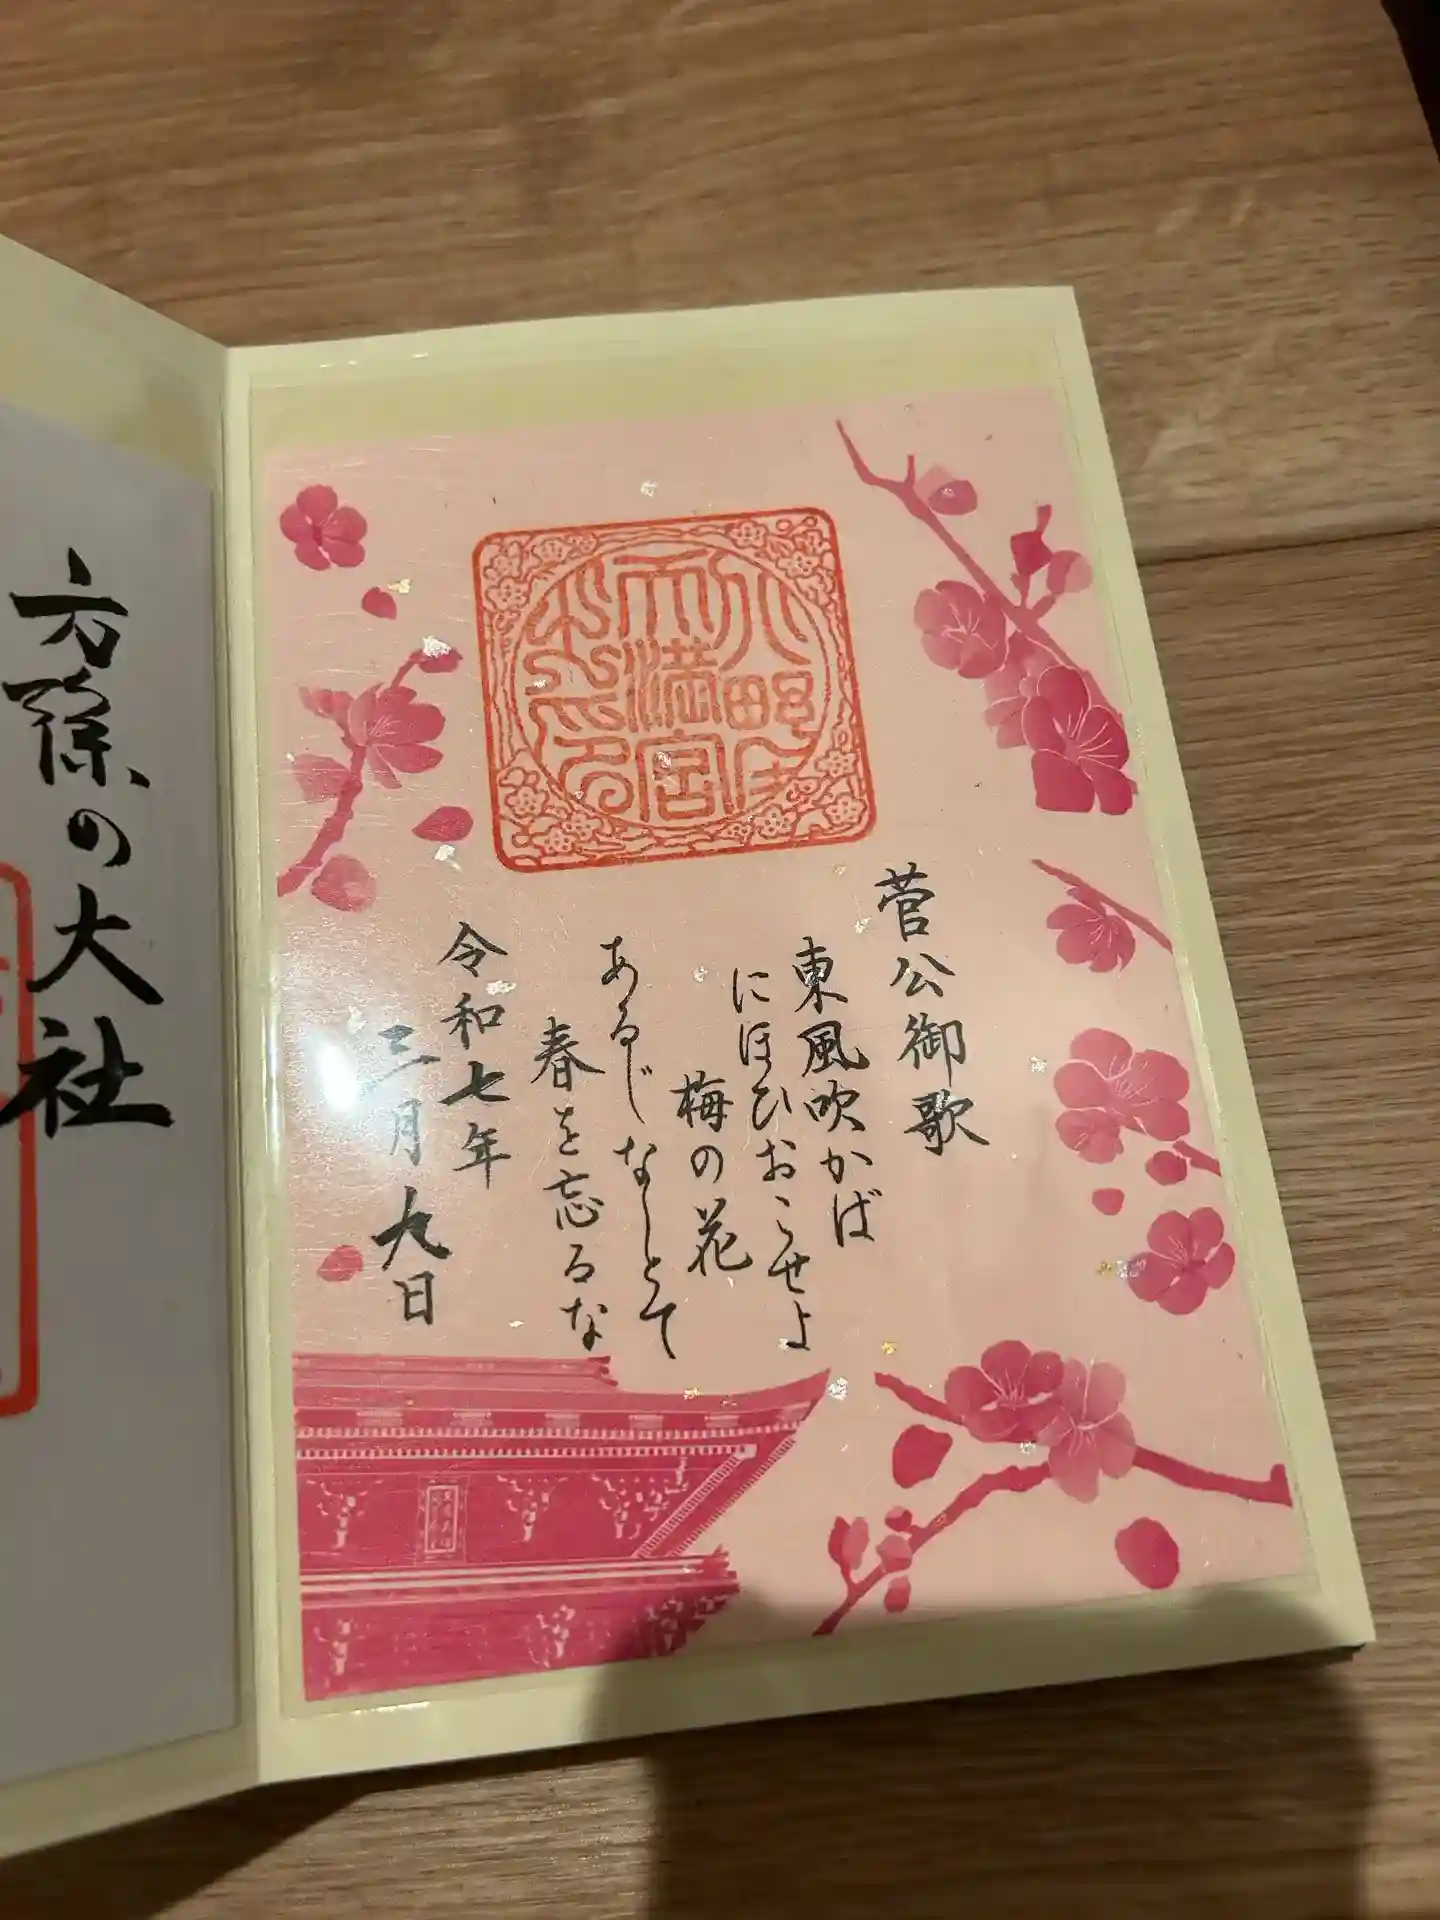 方除の大社
天満宮
菅公御歌
東風吹かば
にほひおこせよ
梅の花
あるじなしとて
春を忘るな
令和七年
三月九日